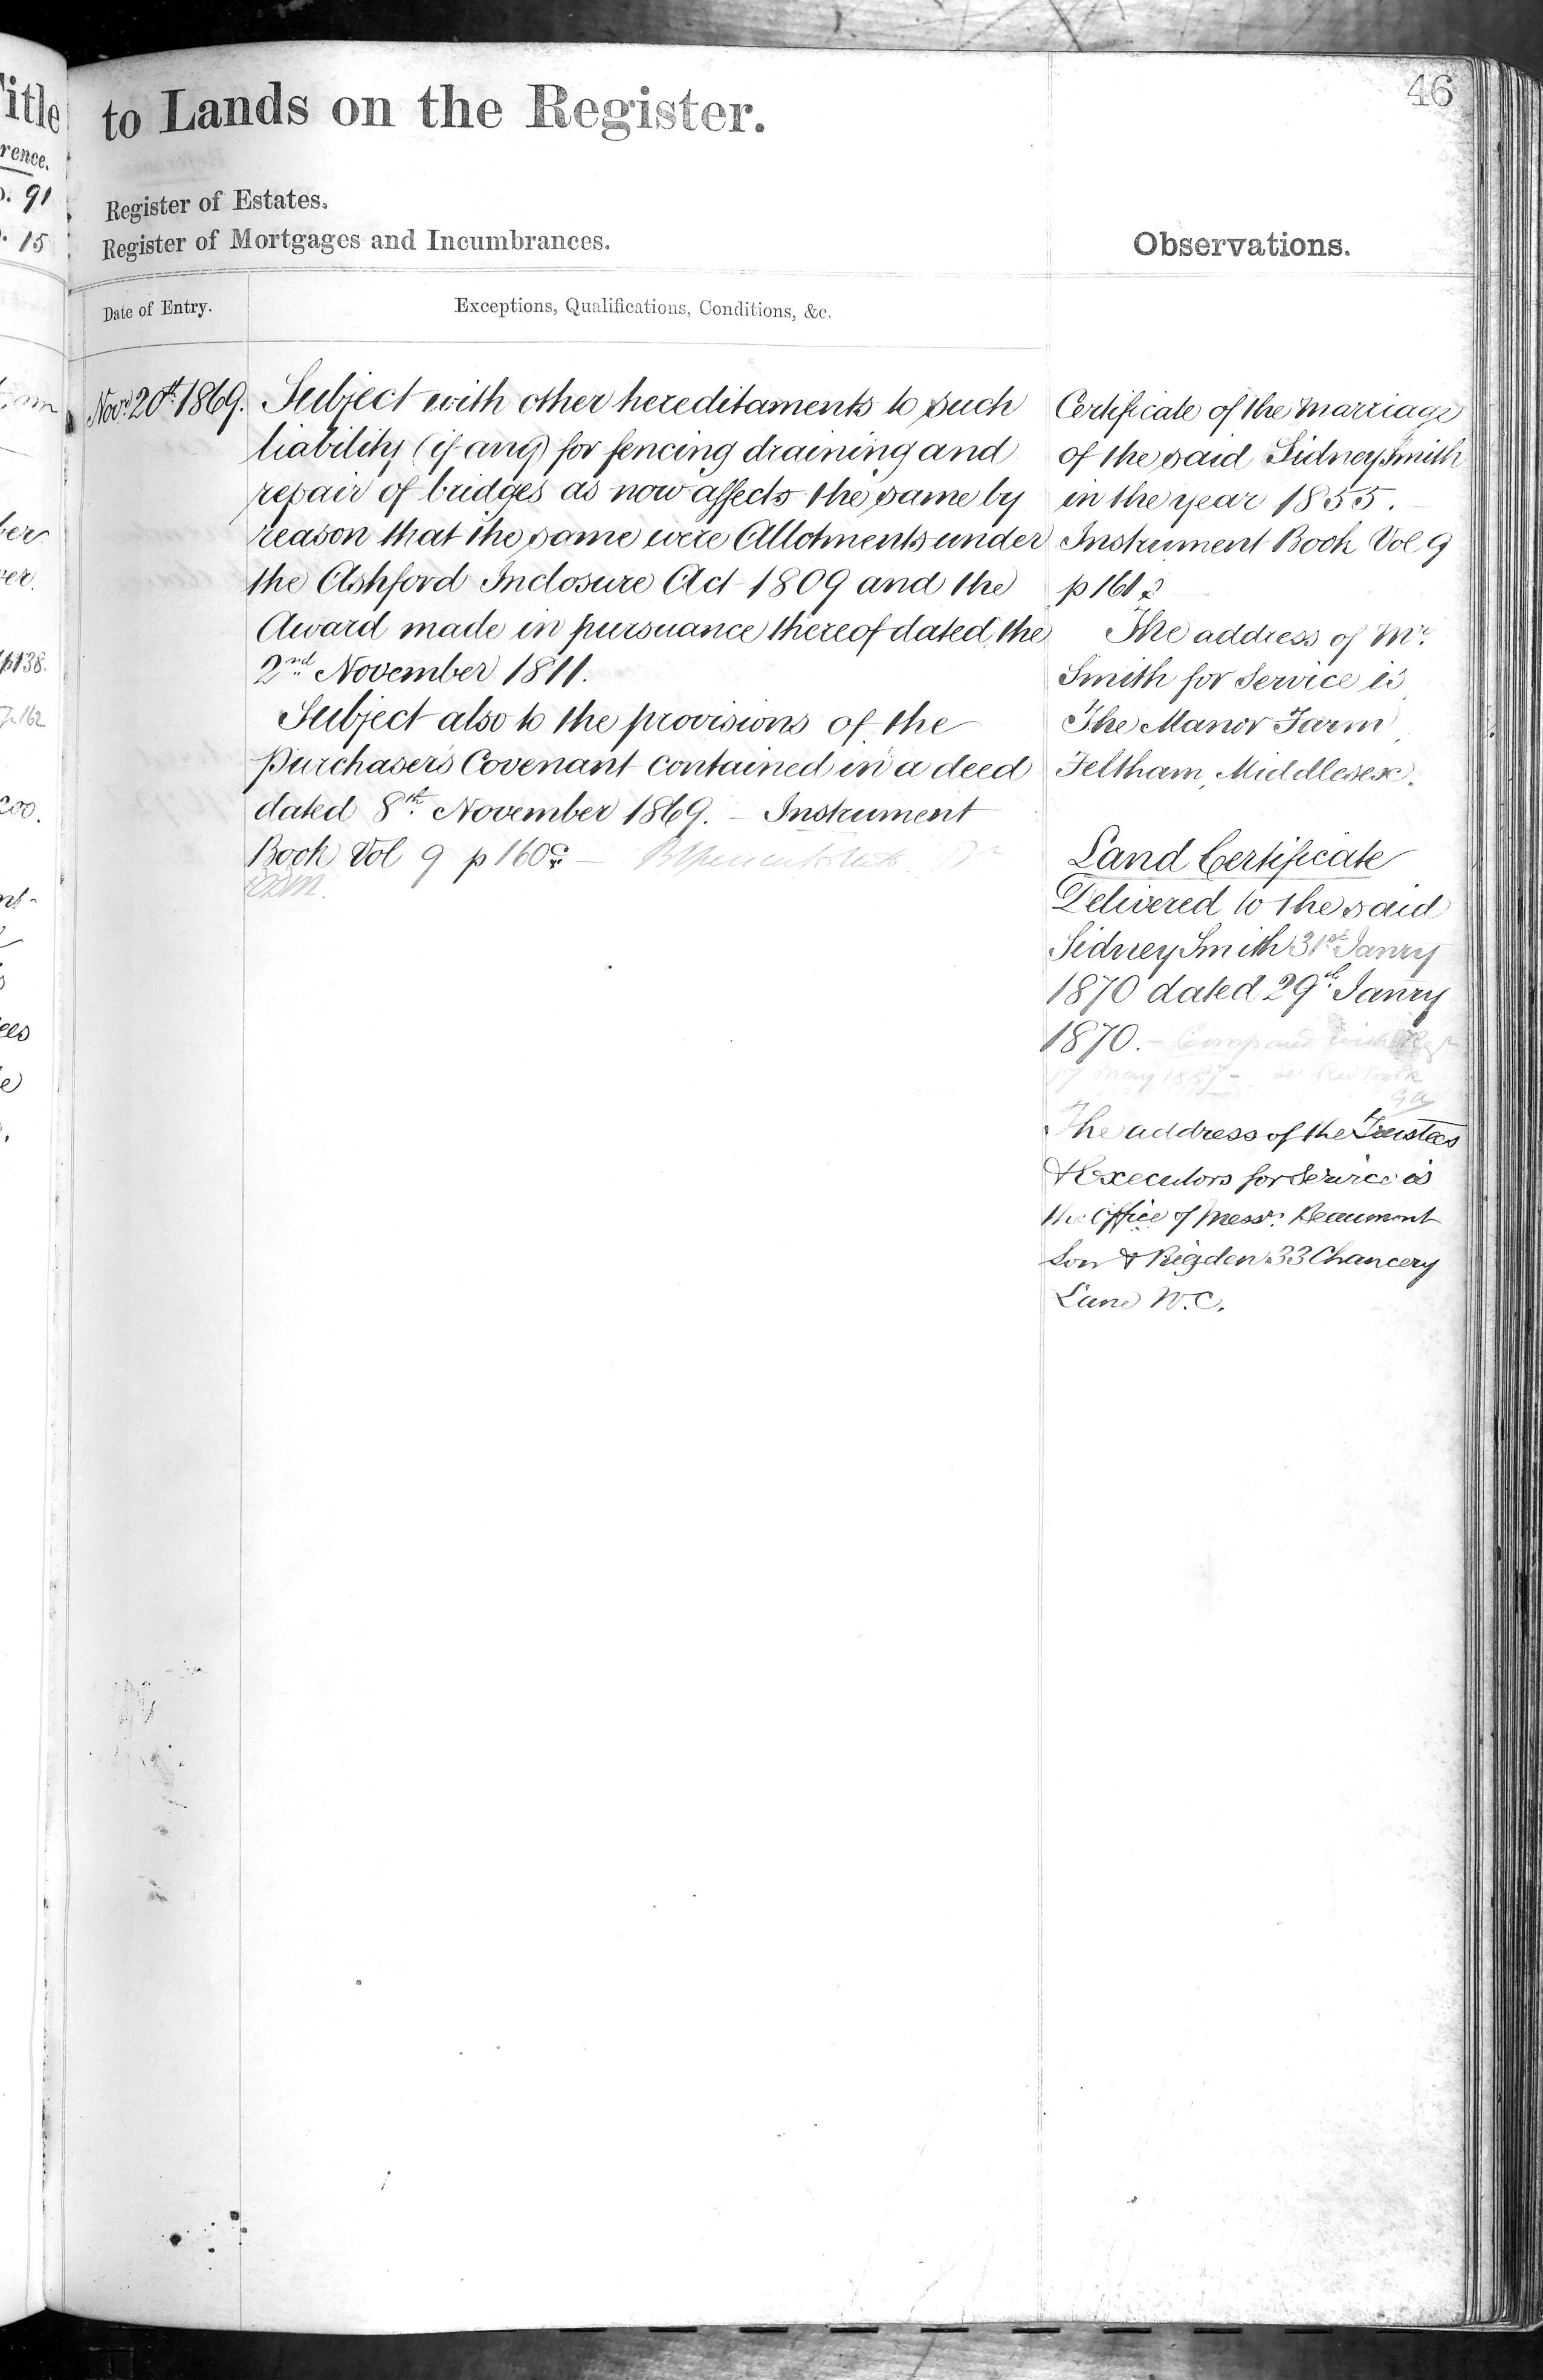 46
to Lands on the Register.
Register of Estates.
Register of Mortgages and Incumbrances.
Observations.
Date of Entry.
Exceptions, Qualifications, Conditions, &c.
Novr 20th 1869.
Subject with other hereditaments to such
liability (if any) for fencing draining and
repair of bridges as now affects the same by
reason that the same were Allotments under
the Ashford Inclosure Act 1809 and the
Award made in pursuance thereof dated the
2nd November 1811.
Subject also to the provisions of the
Purchaser's Covenant contained in a deed
dated 8th November 1869. – Instrument
Book Vol 9 p 160
Certificate of the Marriage
of the said Sidney Smith
in the year 1855. –
Instrument Book Vol 9
p 161
The address of Mr.
Smith for Service is
The Manor Farm
Feltham, Middlesex.
Land Certificate
Delivered to the said
Sidney Smith 31st Janry
1870 dated 29th Janry
1870. – Compared with
17 May
The address of the Trustees
& Executors for Service is
the Office of Messrs. Beaumont
Son & Rigden 33 Chancery
Lane W.C.
itle
rence.
91
15
p138.
162